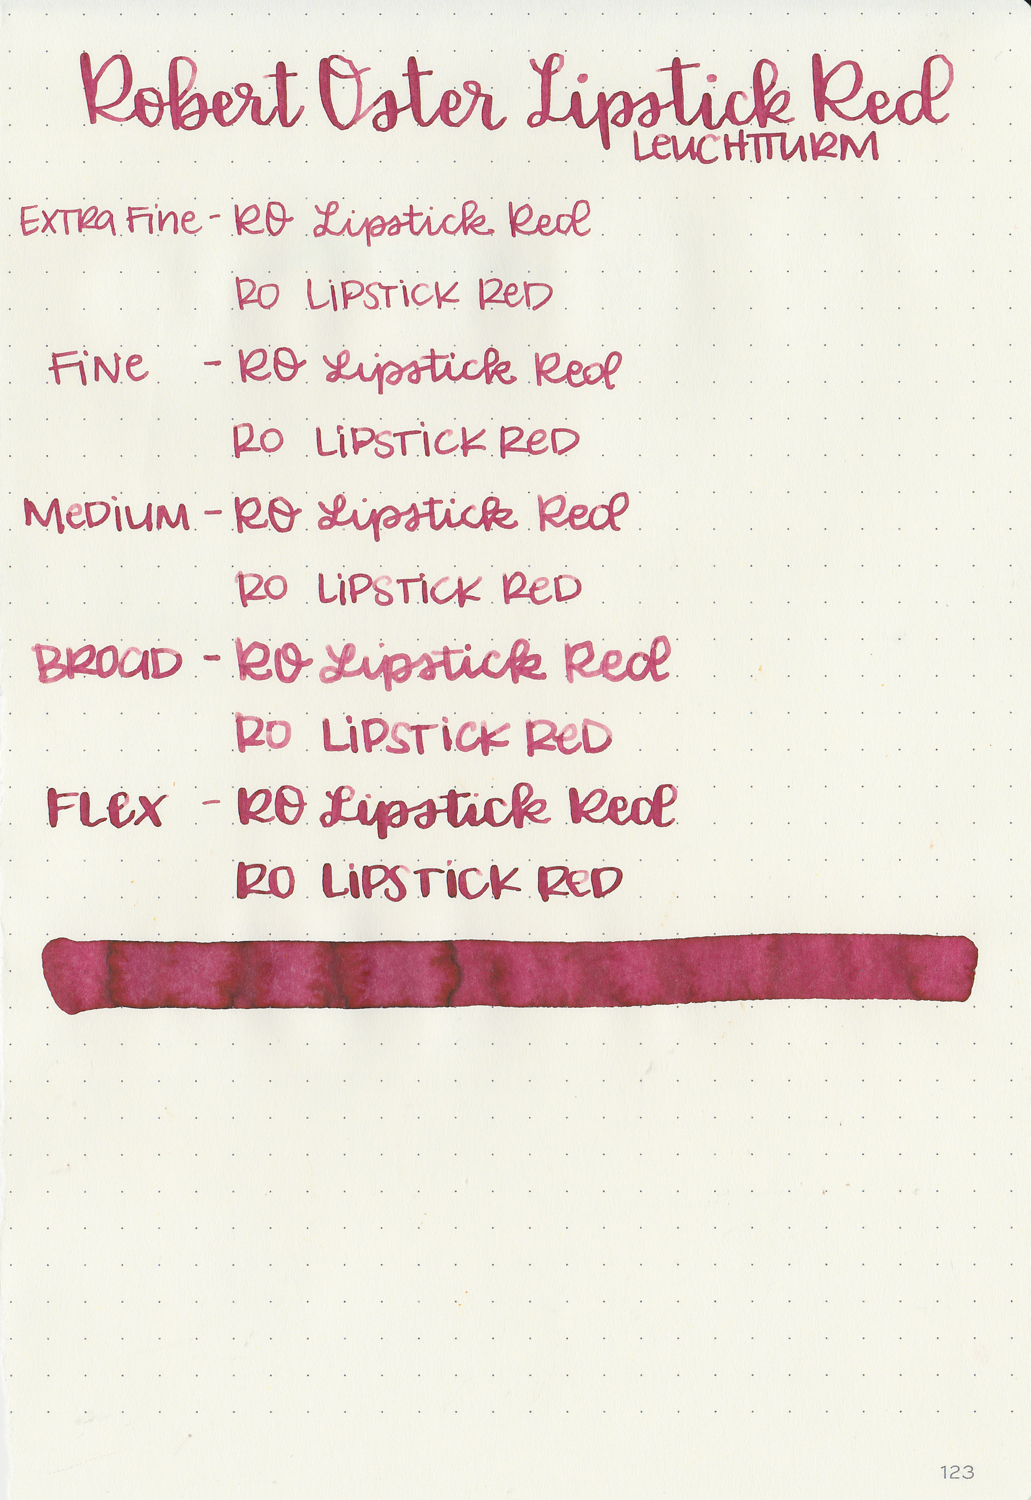 Robert Oster Lipstick Red
LEUCHTTURM
EXTRA FiNe - RO Lipstick Red
RO LiPSTiCK ReD
FiNe - RO Lipstick Red
RO LiPSTiCK ReD
MeDiUM - RO Lipstick Red
RO LiPSTiCK ReD
BROAD - RO Lipstick Red
RO LiPSTiCK ReD
FLeX - RO Lipstick Red
RO LiPSTiCK ReD
123